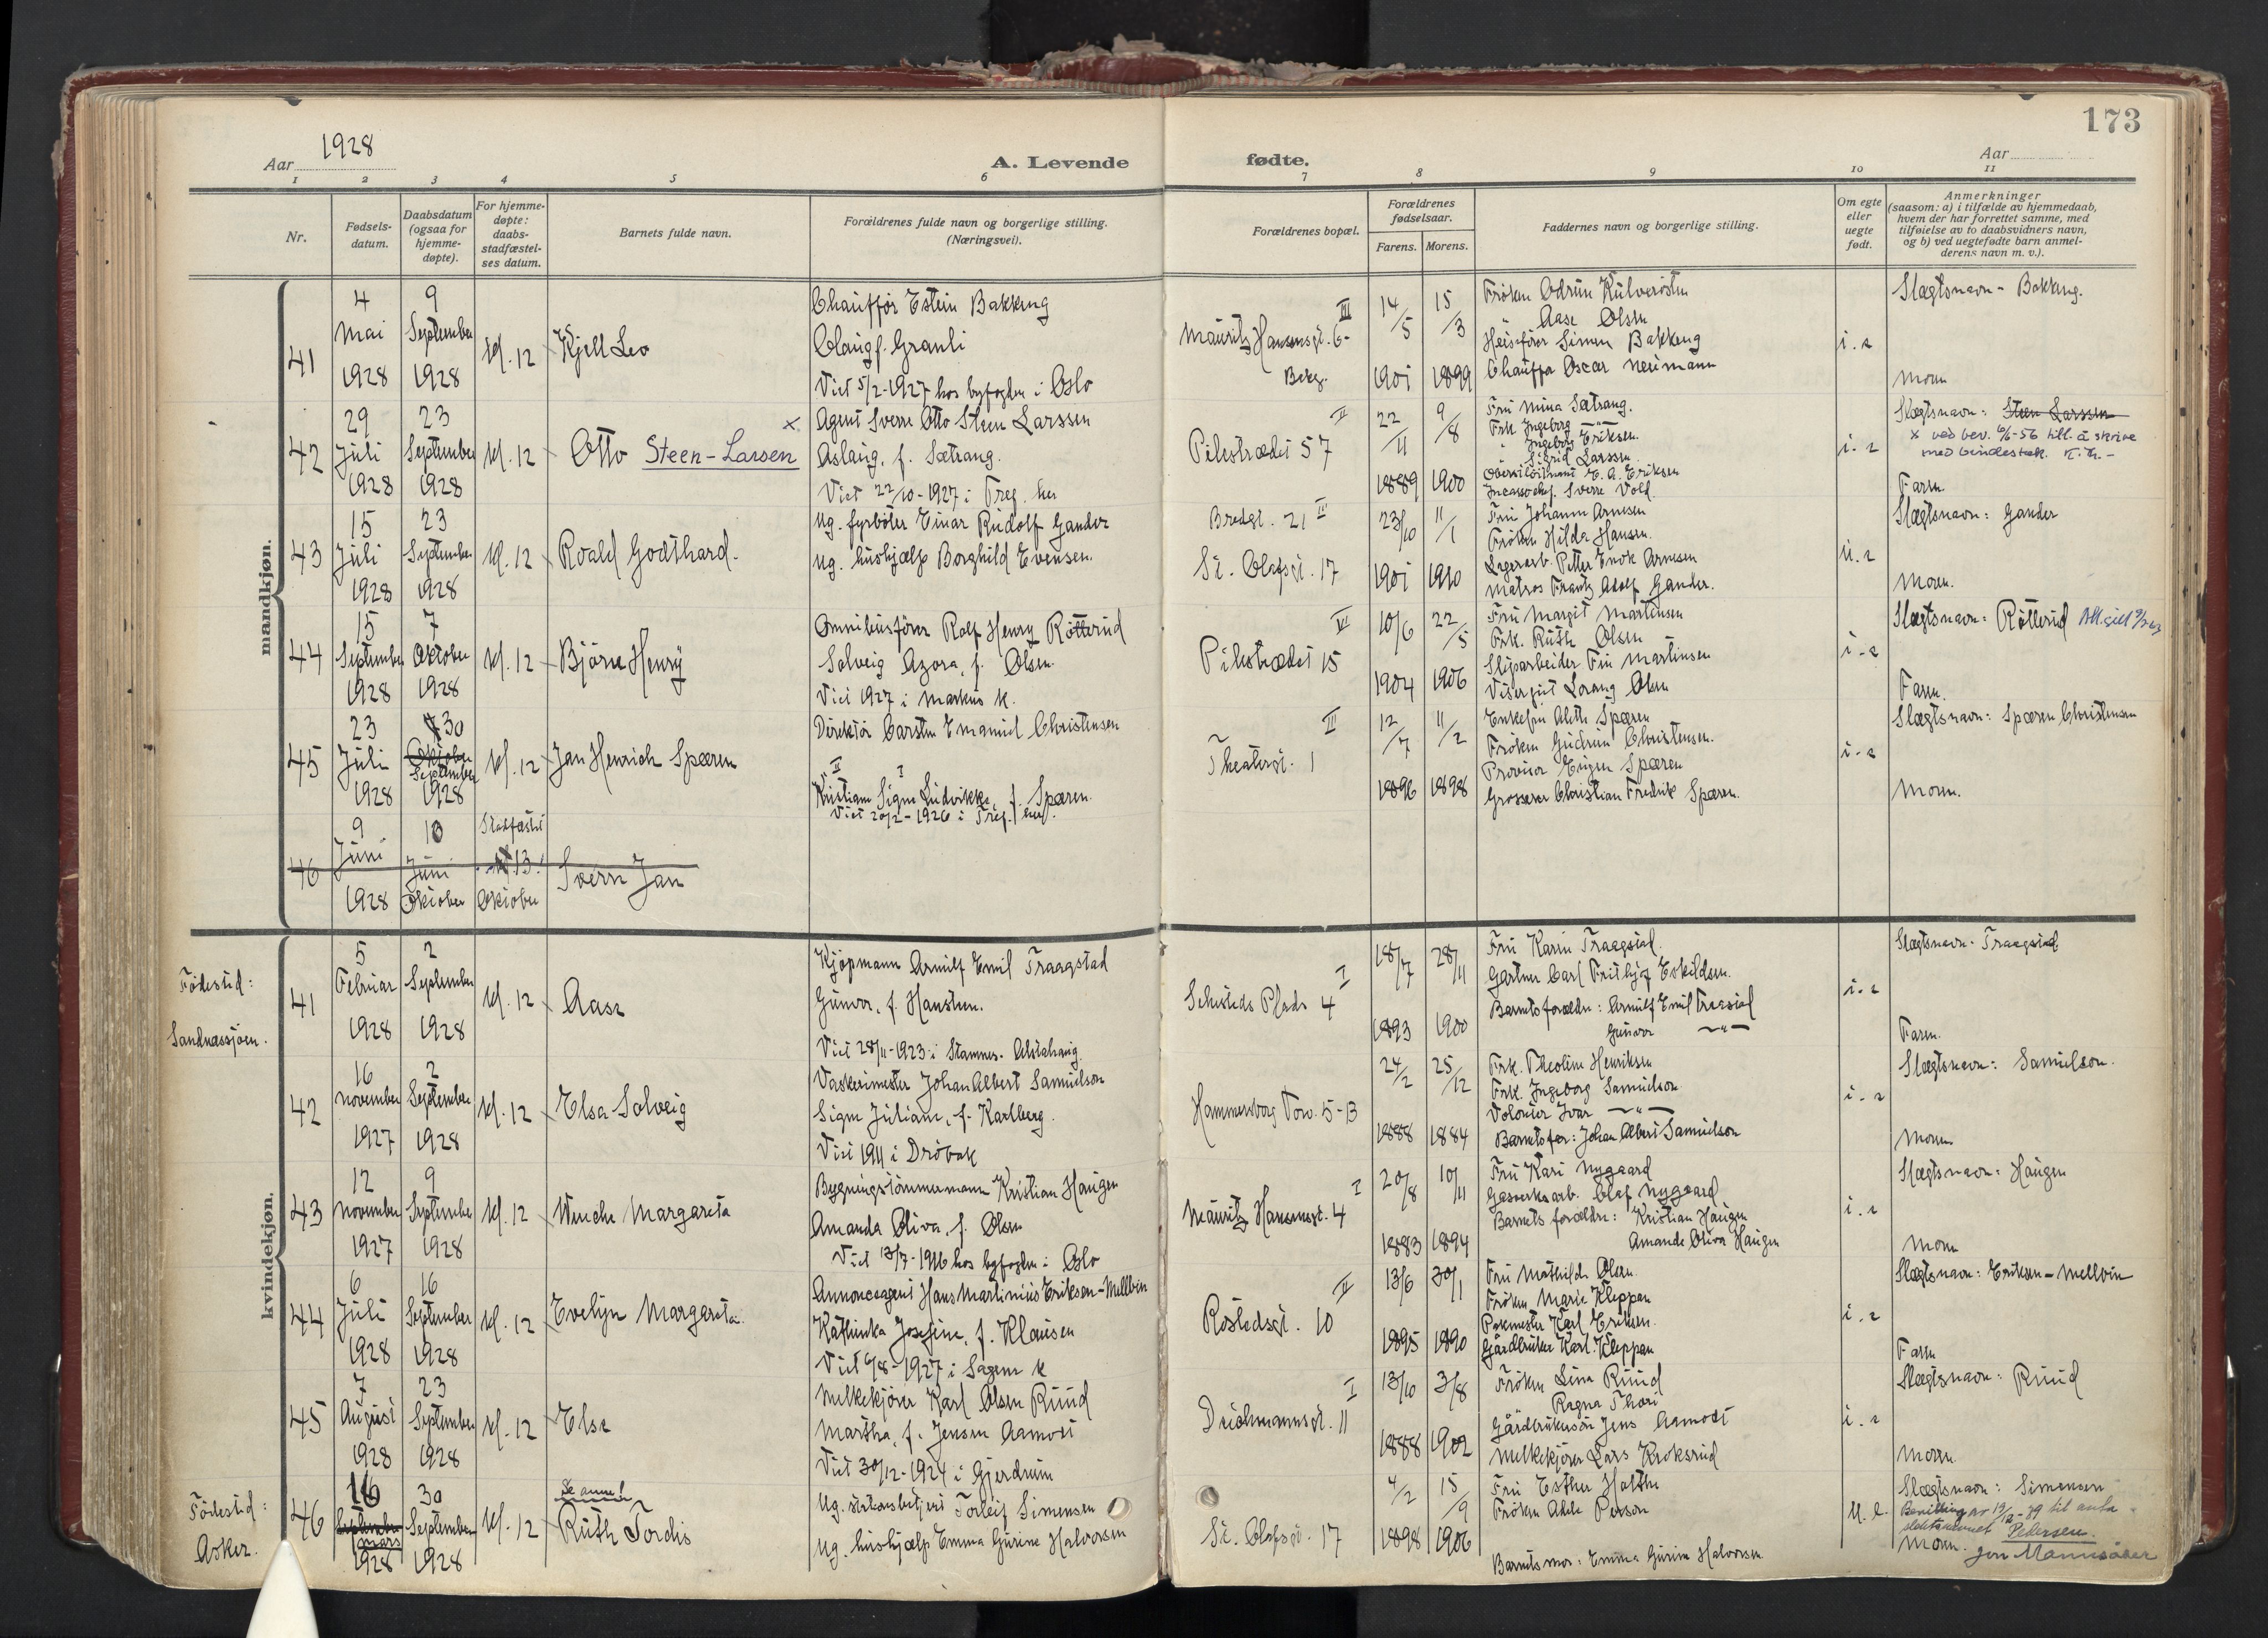 173
Aar 1928
A. Levende fødte.
Aar
1 2 3 4 5 6 7 8 9 10 11
Nr.
Fødsels-
datum.
Daabsdatum
(ogsaa for
hjemme-
døpte).
For hjemme-
døpte:
daabs-
stadfæstel-
ses datum.
Barnets fulde navn.
Forældrenes fulde navn og borgerlige stilling.
(Næringsvei).
Forældrenes bopæl.
Forældrenes
fødselsaar.
Farens. Morens.
Faddernes navn og borgerlige stilling.
Om egte
eller
uegte
født.
Anmerkninger
(saasom: a) i tilfælde av hjemmedaab,
hvem der har forrettet samme, med
tilføielse av to daabsvidners navn,
og b) ved uegtefødte barn anmel-
derens navn m. v.).
mandkjøn.
41
4
Mai
1928
9
September
1928
kl. 12
Kjell Leo
Chauffør Estein Bakkeng
Olaug f. Granli
Viet 5/2-1927 hos byfogden i Oslo
III
Mauritz Hansensgt. 6-
14/5
1901
15/3
1899
Frøken Odrun Kulverösten
" Aase Olsen
Heisefører Simen Bakkeng
Chauffør Oscar Neumann
i. e
Slægtsnavn - Bakkeng.
Moren
42
29
Juli
1928
23
September
1928
kl. 12
Otto Steen-Larsen
x
Agent Sverre Otto Steen Larssen
Aslaug, f. Sætrang.
Viet 22/10-1927 i Tref. her
II
Pilestrædet 57
22/11
1889
9/8
1900
Fru Mina Sætrang.
Frk. Ingeborg —"—
" Ingeborg Eriksen.
" Sigrid Larssen
E. A. Eriksen
Sverre Vold.
i. e
Slægtsnavn: Steen Larssen
x ved bev. 6/6-56 till. å skrive
med bindestrek.
Faren
43
15
Juli
1928
23
September
1928
kl. 12
Roald Godthard.
Ug. fyrbøter Einar Rudolf Gander
Ug. hushjælp Borghild Evensen.
Bredgt. 21 II
St. Olafsgt. 17
23/10
1901
11/1
1910
Fru Johanne Arnesen
Frøken Hilda Hansen.
Lagerarb. Petter Enok Arnesen
Matros Frantz Adolf Gander.
u. e
Slægtsnavn: Gander
Moren.
44
15
September
1928
7
Oktober
1928
kl. 12
Bjørn Henry
Omnibusfører Rolf Henry Røtterud
Solveig Azora, f. Olsen.
Viet 1927 i Markus K.
VI
Pilestrædet 15
10/6
1904
22/5
1906
Fru Margit Martinsen
Frk. Ruth Olsen
Sliparbeider Finn Martinsen
Visergut Lorang Olsen
i - e
Slægtsnavn: Røtterud
Faren.
45
23
Juli
1928
7 30
Oktober
September
1928
kl. 12
Jan Henrich Spæren
Direktør Carsten Emanuel Christensen
II I
Kristiane Signe Ludvikke, f. Spæren.
Viet 20/2-1926 i Tref. her.
III
Theatergt. 1
12/7
1896
11/2
1898
Enkefru Alette Spæren
Frøken Gudrun Christensen.
Provisor Eugen Spæren
Grosserer Christian Fredrik Spæren.
i - e
Slægtsnavn: Spæren Christensen
Moren.
46
9
Juni
1928
10
Juni
Oktober
Stadfæstet
kl. 13.
Oktober
Sverre Jan
kvindekjøn.
Fødested:
Sandnessjøen.
41
5
Februar
1928
2
September
1928
kl. 12
Aase
Kjøpmann Arnulf Emil Traagstad
Gunvor, f. Hansteen.
Viet 28/11-1923 i Stamnes. Alstahaug.
I
Schusteds Plads 4
18/7
1893
28/11
1900
Fru Karin Traagstad.
Gartner Carl Frithjof Eskildsen.
Barnets forældre: Arnulf Emil Traagstad
Gunvor —"—
i. e
Slægtsnavn. Traagstad
Faren.
42
16
November
1927
2
September
1928
kl. 12
Elsa Solveig
Vaskerimester Johan Albert Samuelson
Signe Juliane, f. Karlberg.
Viet 1911 i Drøbak
Hammersborg Torv. 5-B
24/2
1888
25/12
1884
Frk. Theoline Henriksen
Frk. Ingeborg Samuelson
Volontør Ivar —"—
Barnets far: Johan Albert Samuelson
i - e
Slægtsnavn: Samuelson.
Moren
43
12
November
1927
9
September
1928
kl. 12
Wenche Margareta
Bygningstømmermann Kristian Haugen
Amanda Oliva, f. Olsen
Viet 13/7-1916 hos byfogden i Oslo
I
Mauritz Hansensgt. 4
20/8
1883
10/11
1894
Fru Kari Nygaard
Gasverksarb. Olaf Nygaard
Barnets forældre: Kristian Haugen
Amanda Oliva Haugen
i. e
Slægtsnavn: Haugen
Moren
44
6
Juli
1928
16
September
1928
kl. 12
Evelyn Margareta.
Annonceagent Hans Martinius Eriksen-Mellvin
Kathinka Josefine, f. Klausen
Viet 6/8-1927 i Sagene K
II
Rostedsgt. 10
13/6
1895
30/1
1890
Fru Mathilde Olsen.
Frøken Marie Kleppan
Karl Eriksen.
Gårdbruker Karl Kleppan
i. e
Slægtsnavn: Eriksen-Mellvin
Faren
45
7
August
1928
23
September
1928
kl. 12
Else
Melkekjører Karl Olsen Ruud
Martha, f. Jensen Aamodt
Viet 30/12-1924 i Gjerdrum
I
Deichmannsgt. 11
13/10
1888
3/8
1902
Frøken Lina Ruud
" Ragna Thori
Gårdbrukersøn Jens Aamodt
Melkekjører Lars Kroksrud
i. e
Slægtsnavn: Ruud
Moren.
Fødested:
Asker.
46
16
September
mars
1928
30
September
1928
kl. 12
Se anm!
Ruth Tordis
Ug. stationsbetjent Torleif Simensen
Ug. hushjælp Emma Gurine Halvorsen
St. Olafsgt. 17
4/2
1898
15/9
1906
Fru Esther Holthe
Frøken Person
Barnets mor: Emma Gurine Halvorsen
u. e.
Slægtsnavn: Simensen
Bevilling av 19/12-49 til anta
slektsnavnet Pedersen.
Moren.